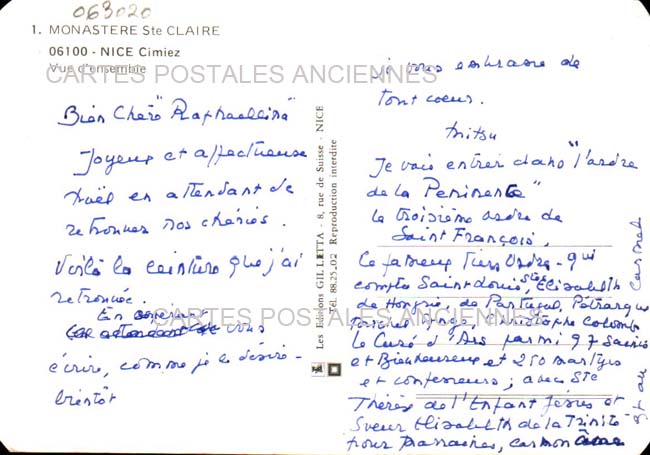 063020
1. MONASTERE Ste CLAIRE
06100 - NICE Cimiez
Vue d'ensemble
CARTES POSTALES ANCIENNES
Bien Chère "Raphaellina"
Joyeux et affectueuse
Noël en attendant de
retrouver nos chéries.
Voilà la ceinture que j'ai
retrouvée.
En espérant
vous
écrire, comme je le désire -
bientôt
CARTES POSTALES ANCIENNES
Les Editions GILLETTA - 8, rue de Suisse - NICE
Tél. 88.25.02 Reproduction interdite
je vous embrasse de
tout coeur.
Mitsu
Je vais entrer dans "l'ordre
de la Penitence"
le troisième ordre de
Saint François,
Le fameux Tiers Ordre - qui
compte Saint Louis, Ste Elisabeth
de Hongrie, de Portugal, Pétrarque
Christophe Colomb
le Curé d'Ars parmi 97 Saints
et Bienheureux et 250 martyrs
et confesseurs ; avec Ste
Thérèse de l'Enfant Jésus et
Soeur Elisabeth de la Trinité
pour Marraines, car mon âme
est au Carmel